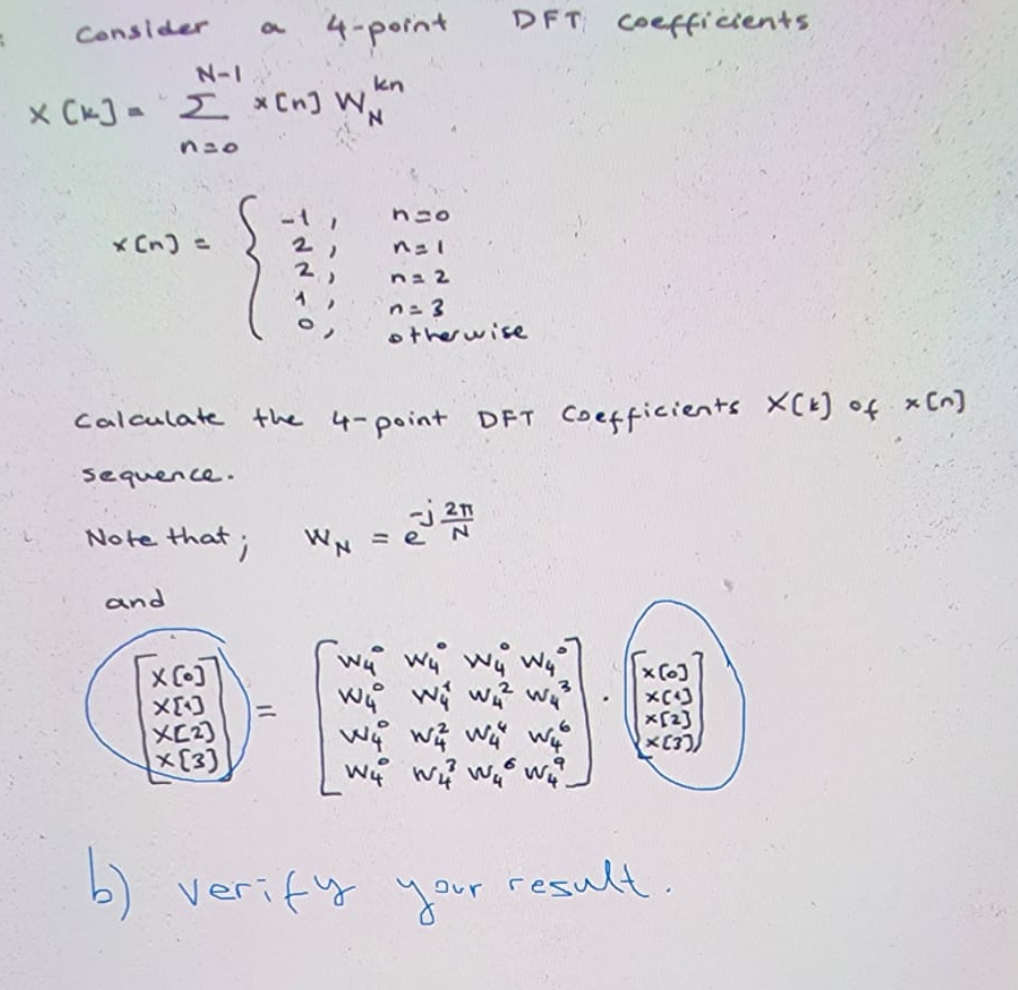 : Consider a 4-point DFT coefficients
X[k] = Σ_{n=0}^{N-1} x[n] W_N^{kn}
x[n] = {
-1, n=0
2, n=1
2, n=2
1, n=3
0, otherwise
Calculate the 4-point DFT Coefficients X[k] of x[n]
sequence.
Note that; W_N = e^{-j 2π/N}
and
[X[0] X[1] X[2] X[3]] = [W_4^0 W_4^0 W_4^0 W_4^0
W_4^0 W_4^1 W_4^2 W_4^3
W_4^0 W_4^2 W_4^4 W_4^6
W_4^0 W_4^3 W_4^6 W_4^9] . [x[0] x[1] x[2] x[3]]
b) verify your result.